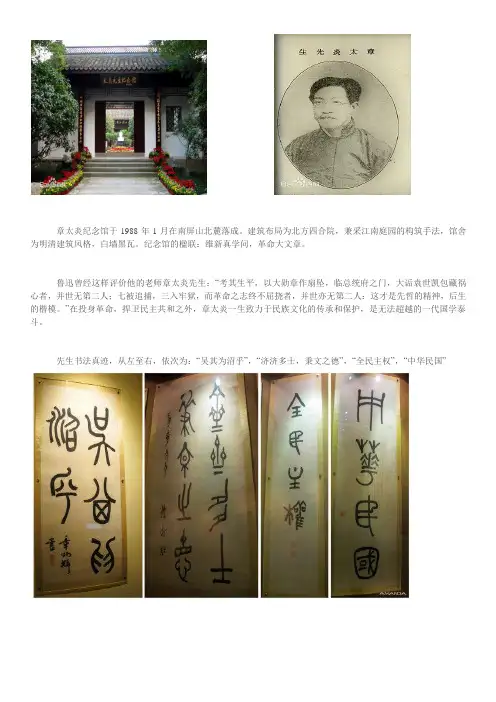 章太炎先生
章太炎纪念馆于 1988 年 1 月在南屏山北麓落成。建筑布局为北方四合院，兼采江南庭园的构筑手法，馆舍
为明清建筑风格，白墙黑瓦。纪念馆的楹联：维新真学问，革命大文章。
鲁迅曾经这样评价他的老师章太炎先生：“考其生平，以大勋章作扇坠，临总统府之门，大诟袁世凯包藏祸
心者，并世无第二人；七被追捕，三入牢狱，而革命之志终不屈挠者，并世亦无第二人：这才是先哲的精神，后生
的楷模。”在投身革命，捍卫民主共和之外，章太炎一生致力于民族文化的传承和保护，是无法超越的一代国学泰
斗。
先生书法真迹，从左至右，依次为：“吴其为沼乎”，“济济多士，秉文之德”，“全民主权”，“中华民国”
吳其為
沼乎
章炳麟
書
濟濟多士
秉文之德
全民主權
中華民國
AMANDA